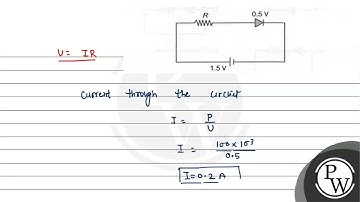 R
0.5 V
1.5 V
V = IR
Current through the circuit
I = P
V
I = 100 × 10³
0.5
I = 0.2 A
PW